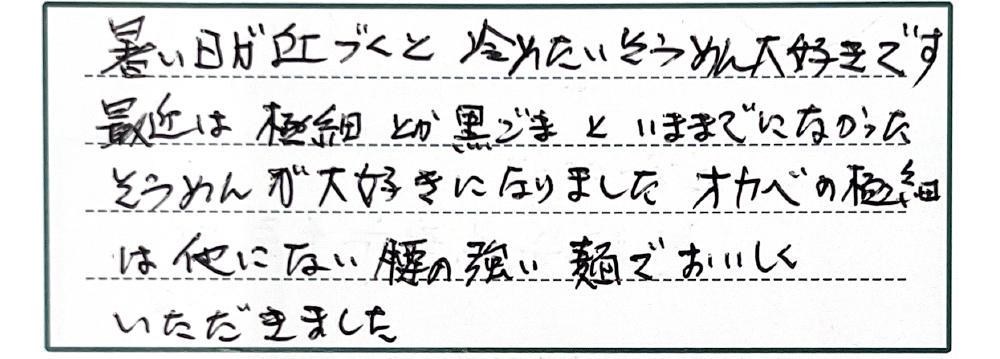 暑い日が近づくと 冷めたいそうめん大好きです
最近は 極細 とか 黒ごま と いままでになかった
そうめんが大好きになりました オカベの極細
は他にない 腰の強い 麺でおいしく
いただきました